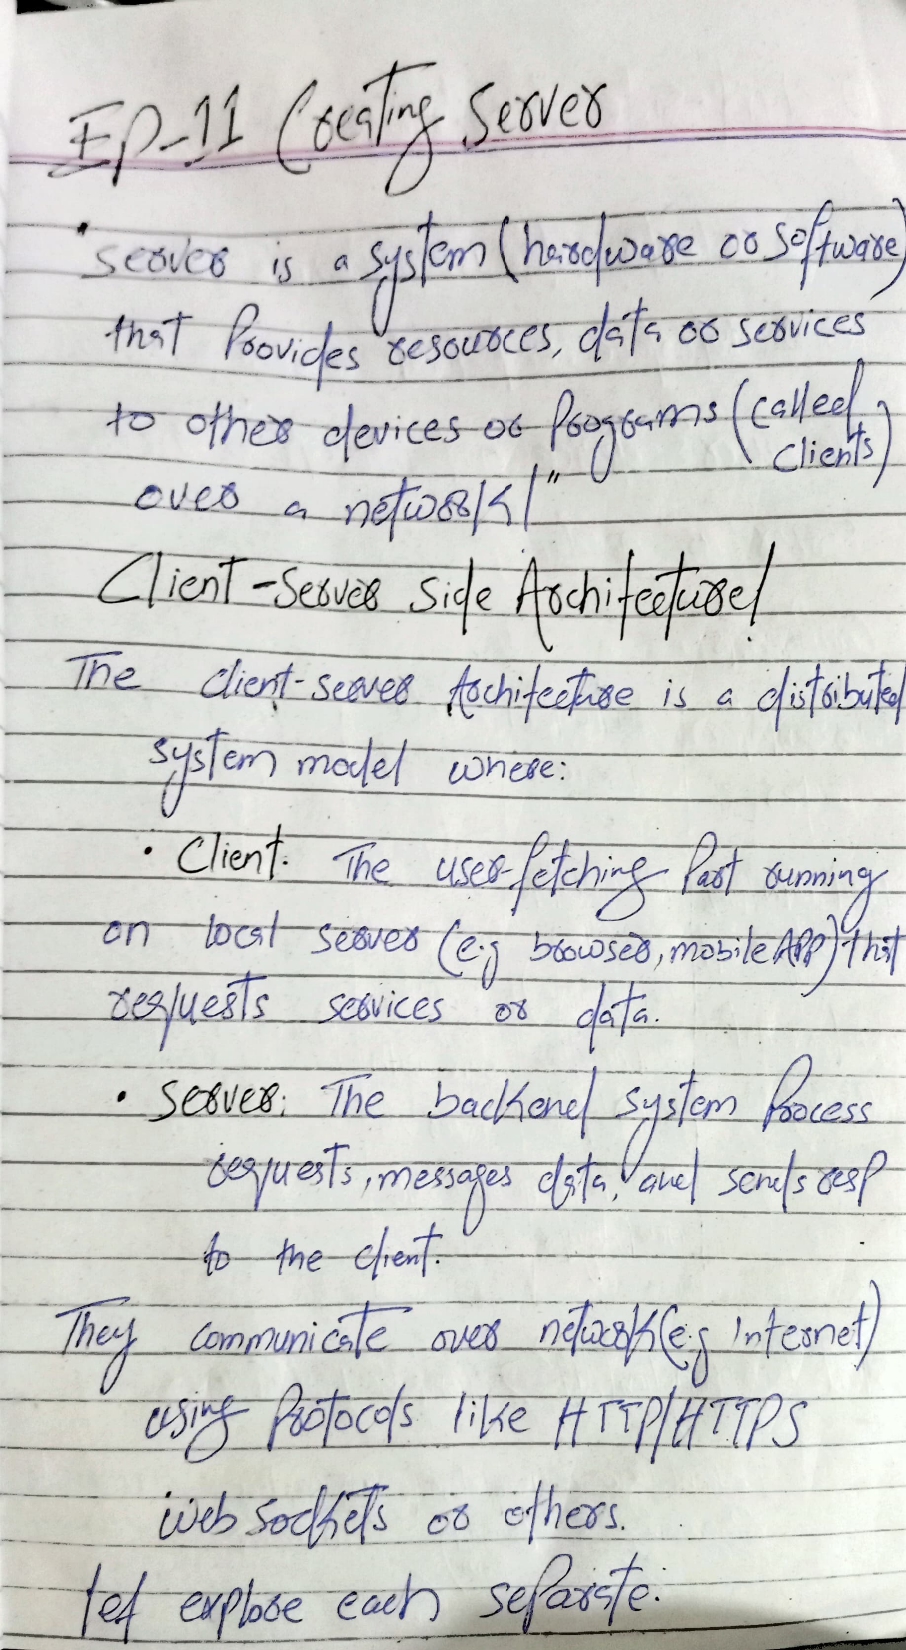 EP-11 Creating Server
• Server is a system (hardware or software)
that Provides resources, data or services
to other devices or Programs (called
clients)
over a network!"
Client-Server Side Architecture!
The client-server Architecture is a distributed
system model where:
• Client. The user-fetching Part running
on local server (e.g browser, mobile APP) that
requests services or data.
• Server: The backend system Process
requests, messages data, and sends resp
to the client.
They communicate over network (e.g Internet)
using Protocols like HTTP/HTTPS
web sockets or others.
let explore each separate.